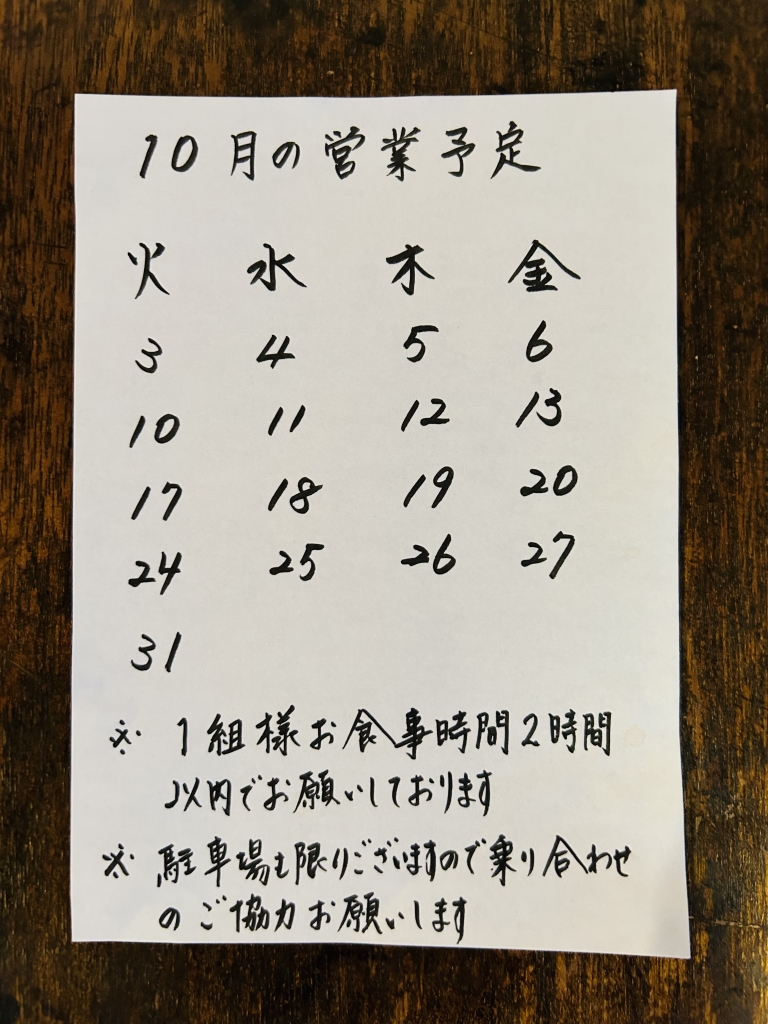 10月の営業予定
火 水 木 金
3 4 5 6
10 11 12 13
17 18 19 20
24 25 26 27
31
※ 1組様お食事時間2時間
以内でお願いしております
※ 駐車場も限りございますので乗り合わせ
のご協力お願いします